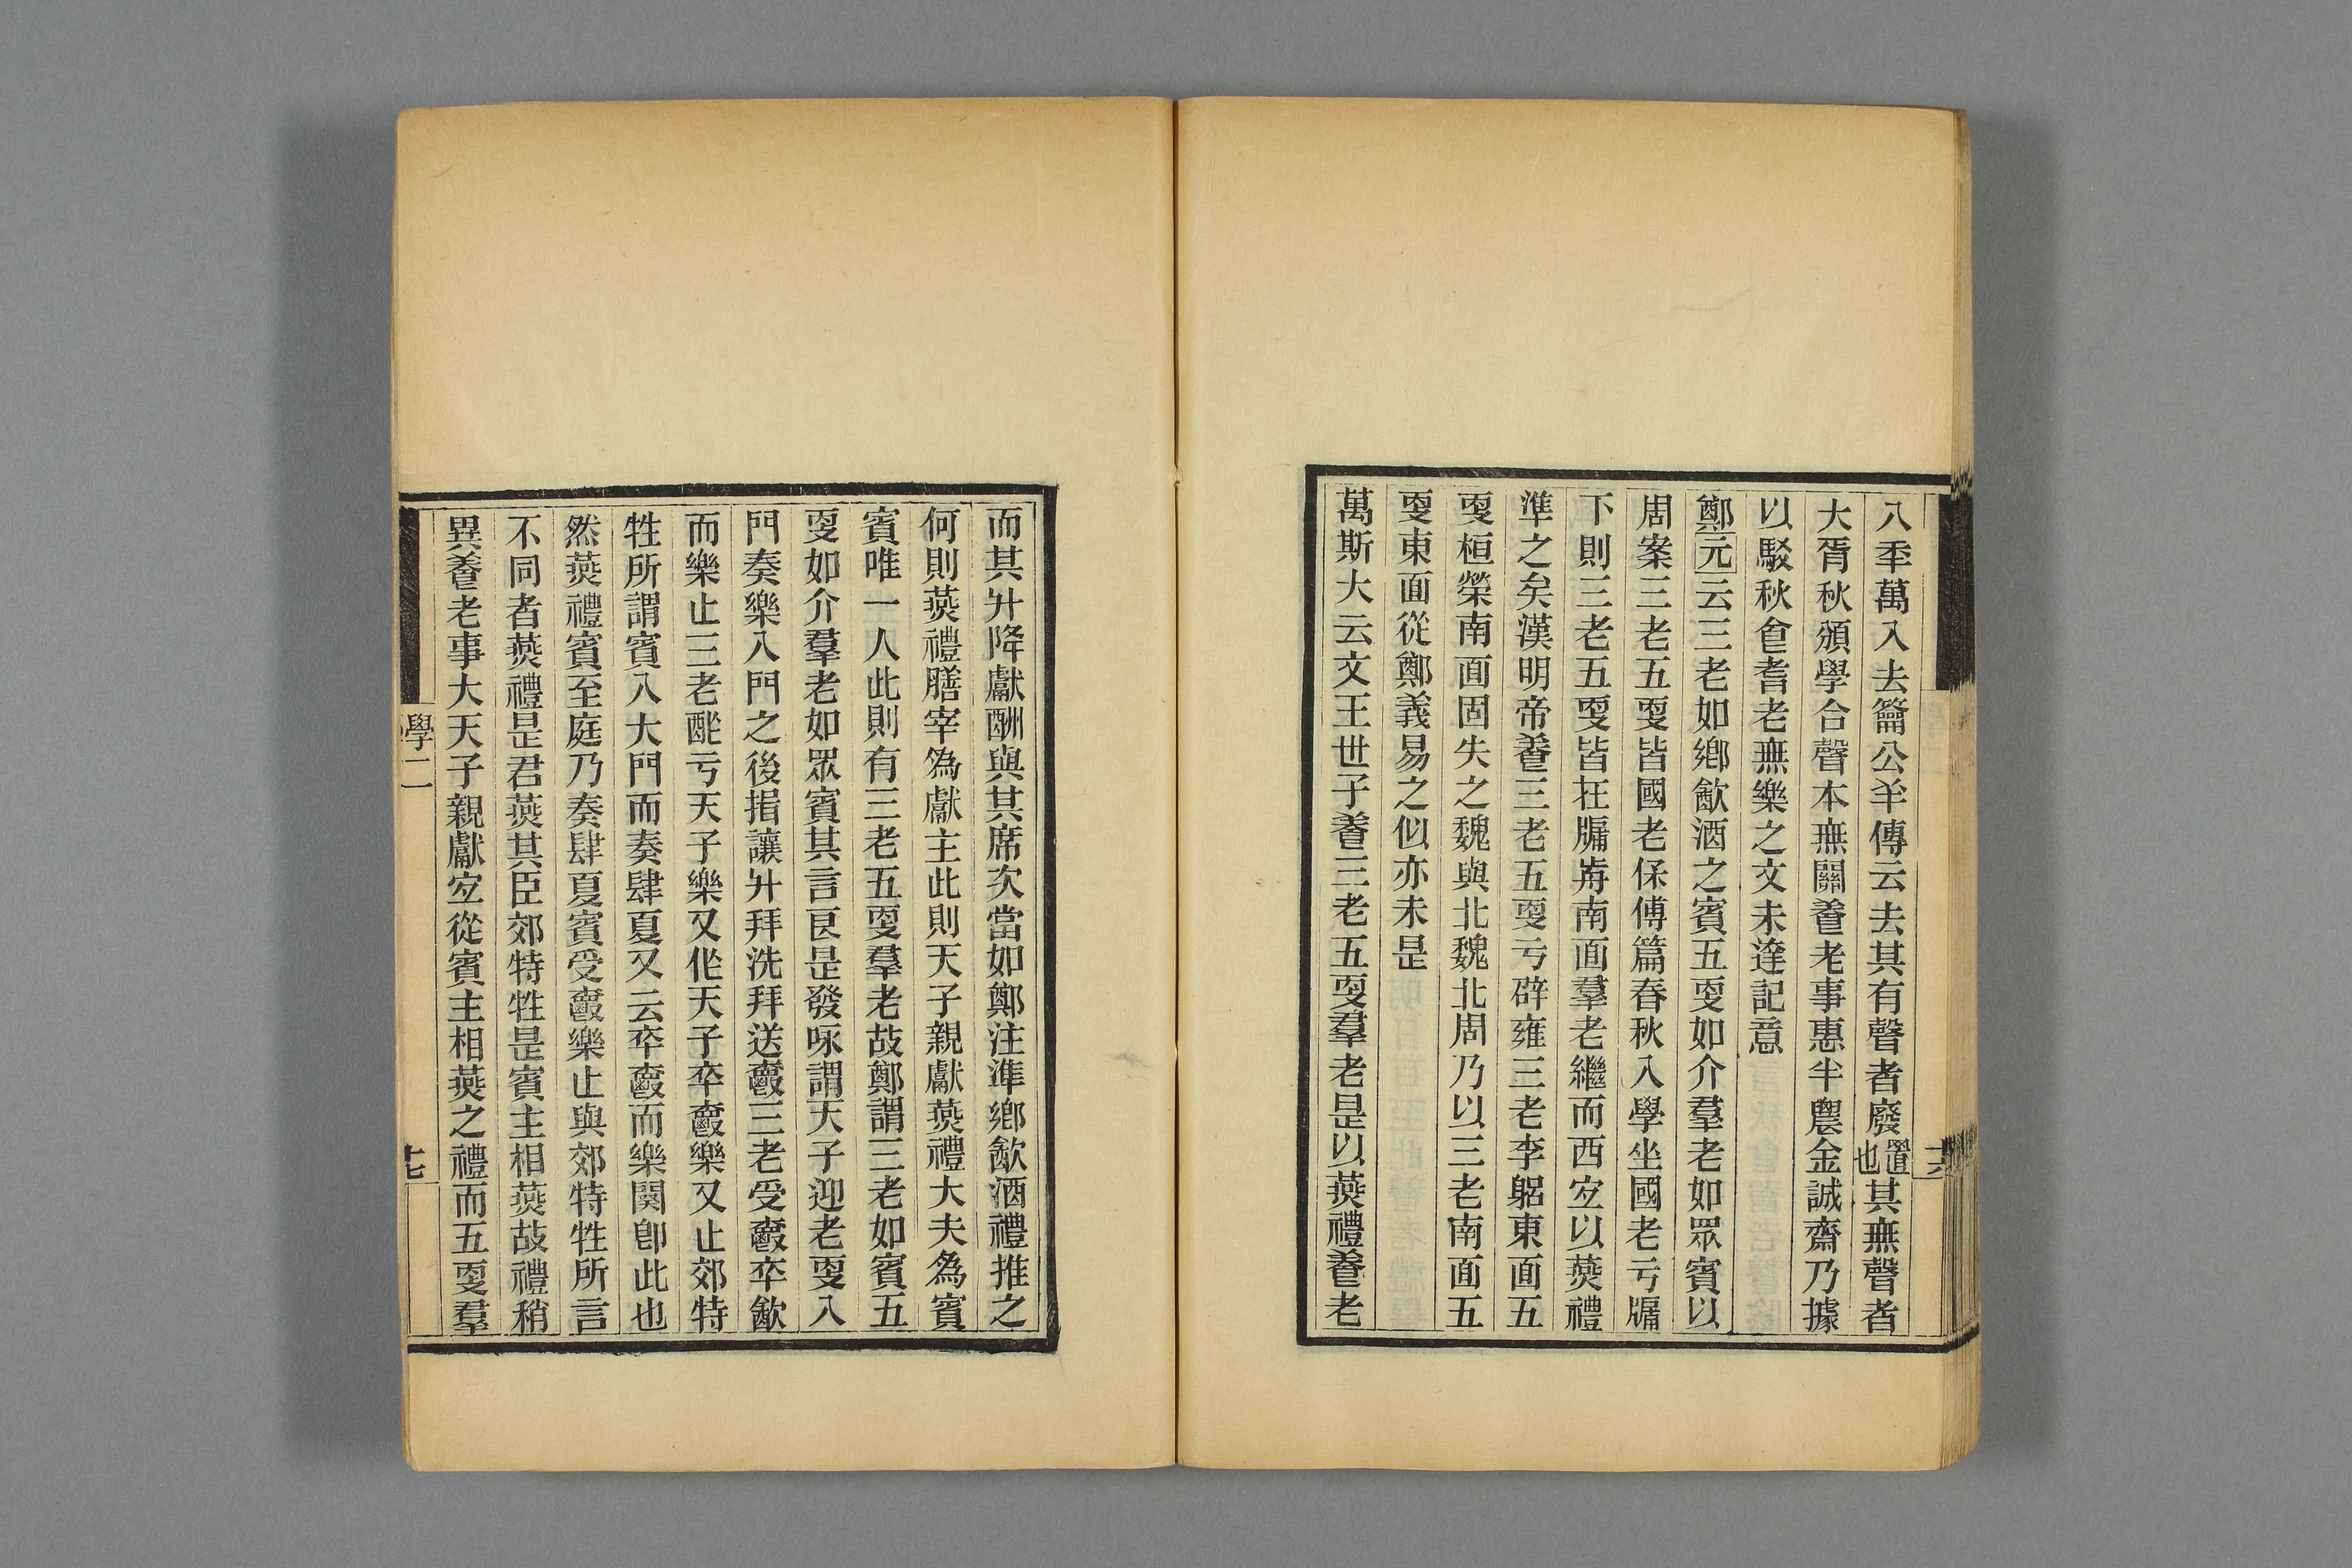 八秊萬入去籥公羊傳云去其有聲者廢置也其無聲者
大胥秋頒學合聲本無關養老事惠半農金誠齋乃據
以駁秋食耆老無樂之文未達記意
鄭元云三老如鄉飮酒之賓五叟如介羣老如眾賓以
周案三老五叟皆國老保傅篇春秋入學坐國老亏牖
下則三老五叟皆在牖歬南面羣老繼而西宜以燕禮
準之矣漢明帝養三老五叟亏辟雍三老李躬東面五
叟桓榮南面固失之魏與北魏北周乃以三老南面五
叟東面從鄭義易之似亦未是
萬斯大云文王世子養三老五叟羣老是以燕禮養老
而其升降獻酬與其席次當如鄭注準鄉飮酒禮推之
何則燕禮膳宰為獻主此則天子親獻燕禮大夫為賓
賓唯一人此則有三老五叟羣老故鄭謂三老如賓五
叟如介羣老如眾賓其言良是發咏謂天子迎老叟入
門奏樂入門之後揖讓升拜洗拜送爵三老受爵卒飮
而樂止三老酢亏天子樂又作天子卒爵樂又止郊特
牲所謂賓入大門而奏肆夏又云卒爵而樂闋卽此也
然燕禮賓至庭乃奏肆夏賓受爵樂止與郊特牲所言
不同者燕禮是君燕其臣郊特牲是賓主相燕故禮稍
異養老事大天子親獻宜從賓主相燕之禮而五叟羣
學二
十七
十六